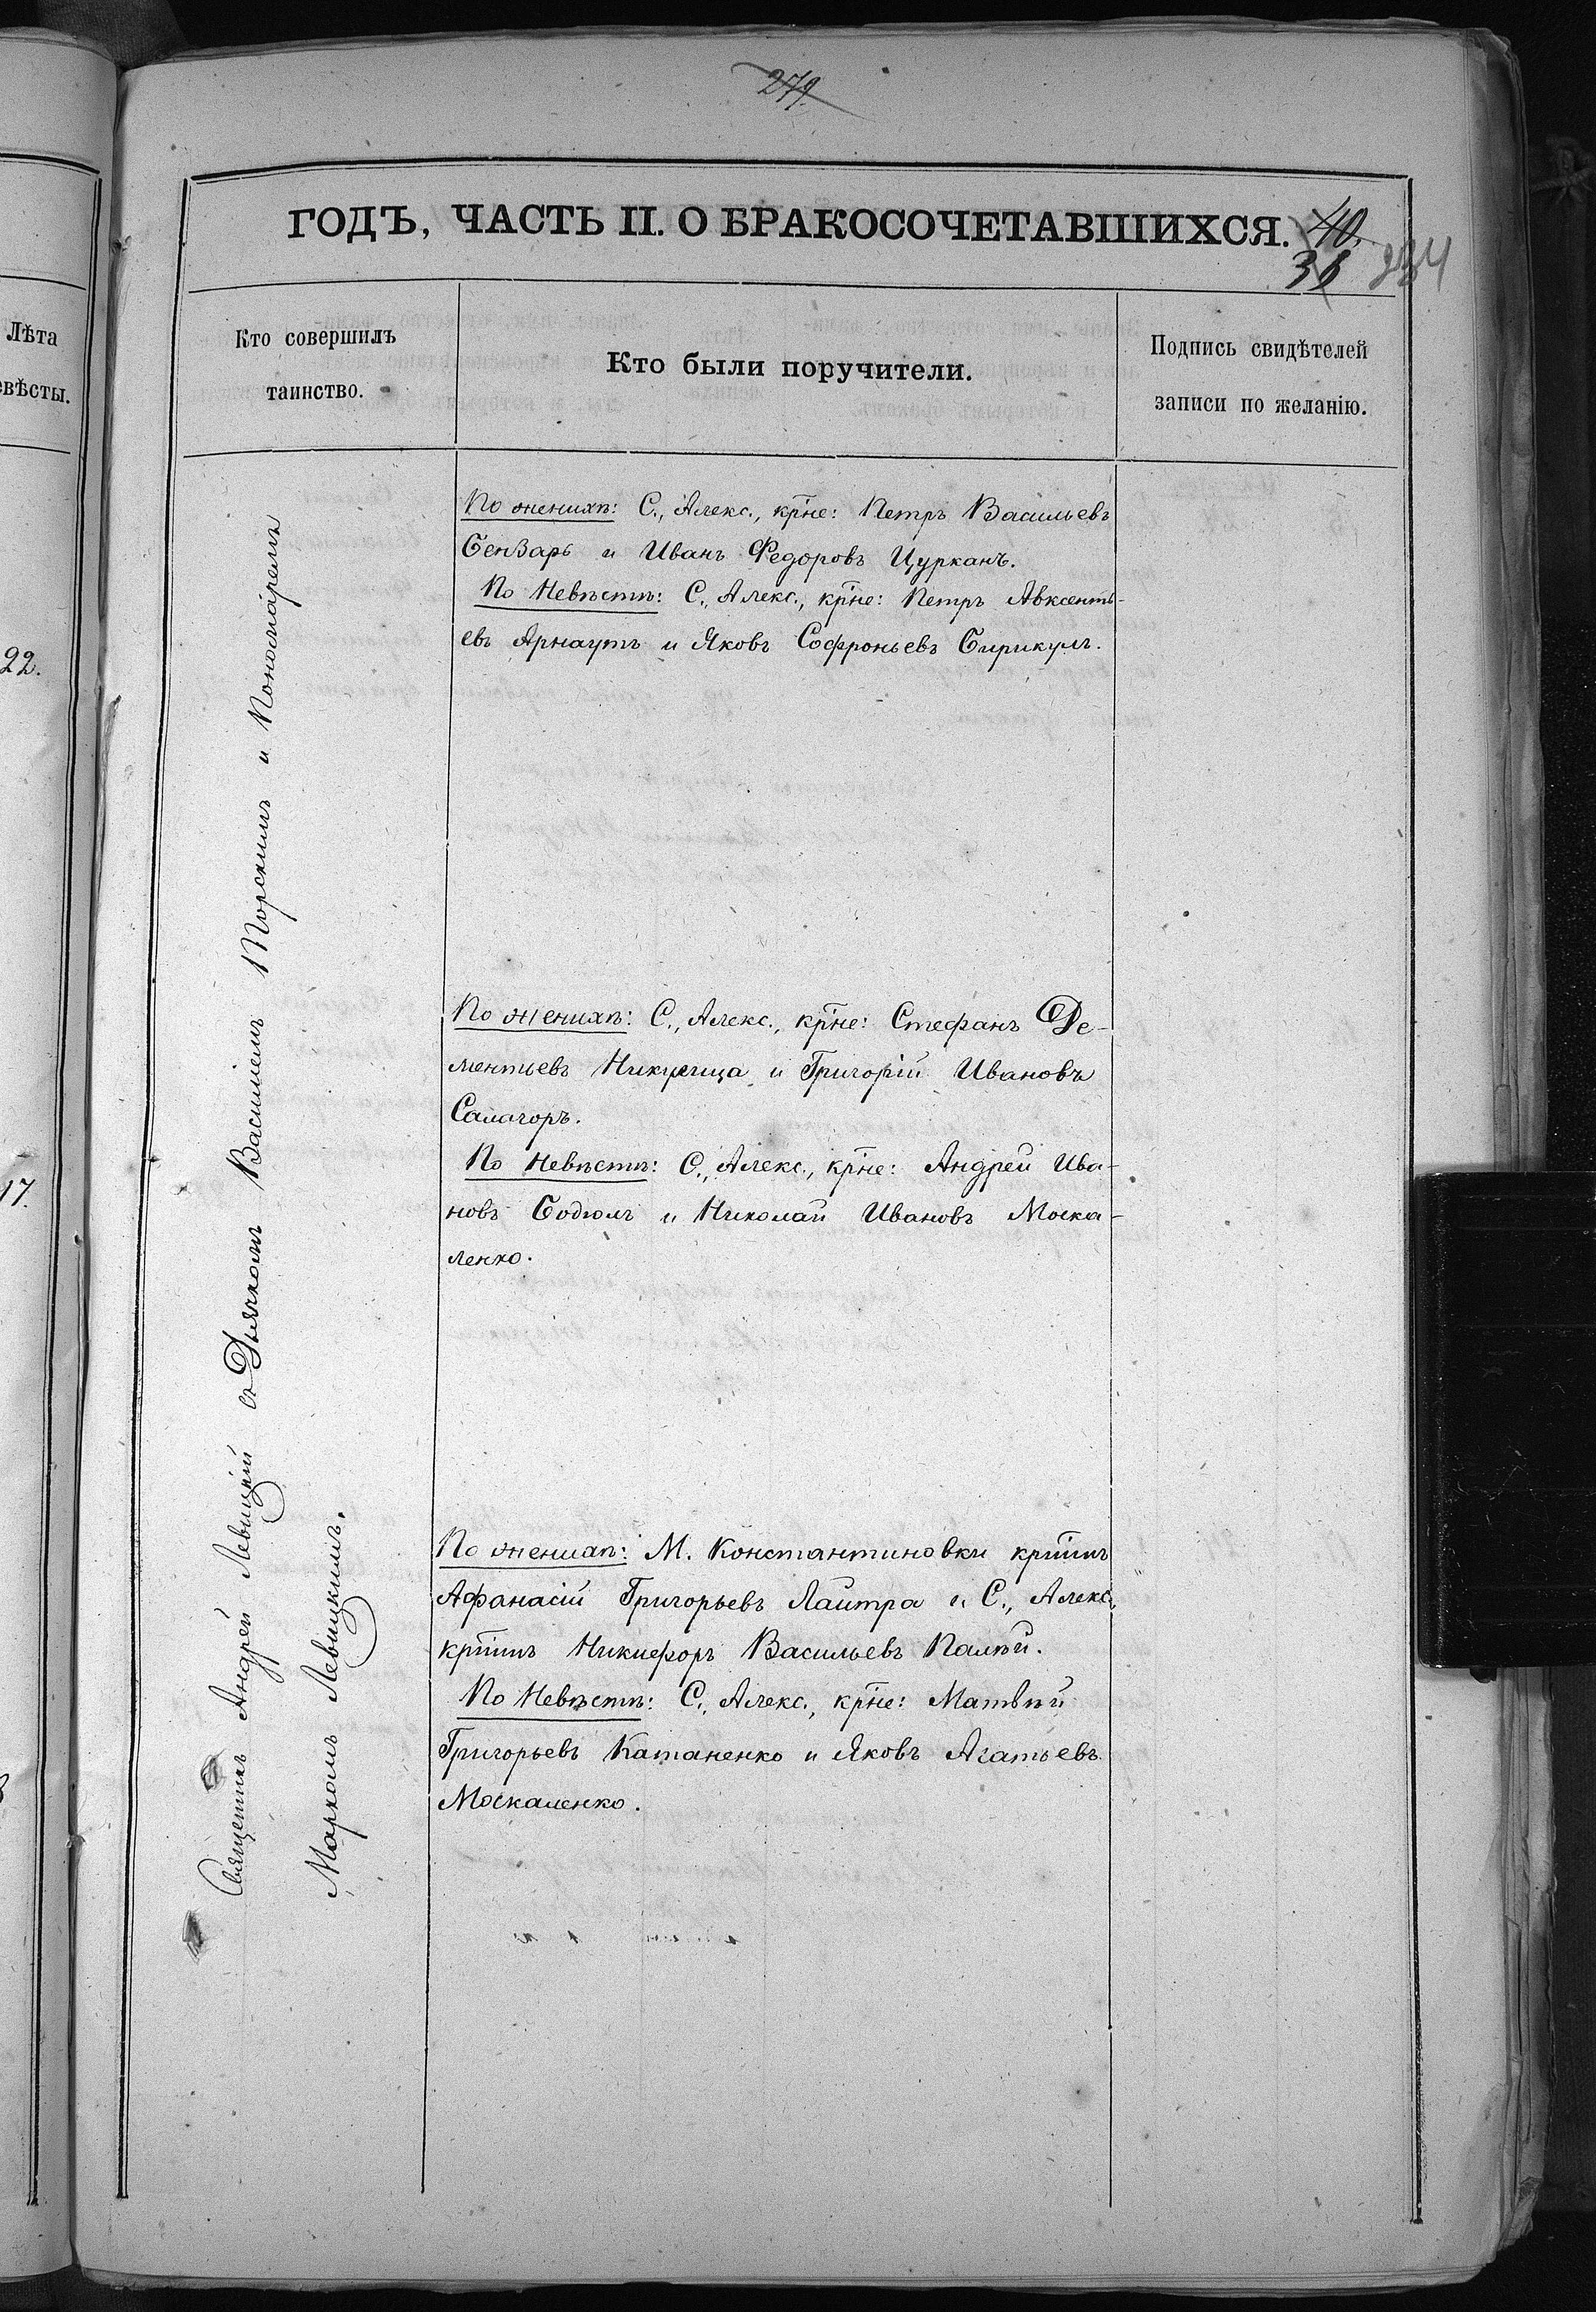 279.
ГОДЪ, ЧАСТЬ II. О БРАКОСОЧЕТАВШИХСЯ. 40.
Лѣта
евѣсты.
Кто совершилъ
таинство.
Кто были поручители.
Подпись свидѣтелей
записи по желанію.
22.
17.
Священникъ Андрей Левицкій съ Дьячкомъ Василіемъ Торскимъ и Пономаремъ
Маркомъ Левицкимъ.
По женихѣ: С., Алекс., кр̃не: Петръ Васильевъ
Бензарь и Иванъ Федоровъ Цурканъ.
По Невѣстѣ: С., Алекс., кр̃не: Петръ Авксенть-
евъ Арнаутъ и Яковъ Софроньевъ Бирикулъ.
По женихѣ: С., Алекс., кр̃не: Стефанъ Де-
ментьевъ и Григорій Ивановъ
Салагоръ.
По Невѣстѣ: С., Алекс., кр̃не: Андрей Ива-
новъ Бодюлъ и Николай Ивановъ Моска-
ленко.
По женихѣ: М. Константиновки кр̃тинъ
Афанасій Григорьевъ Лаитра и С., Алекс.,
кр̃тинъ Никифоръ Васильевъ Палѣй.
По Невѣстѣ: С., Алекс., кр̃не: Матвѣй
Григорьевъ Катаненко и Яковъ Агатьевъ
Москаленко.